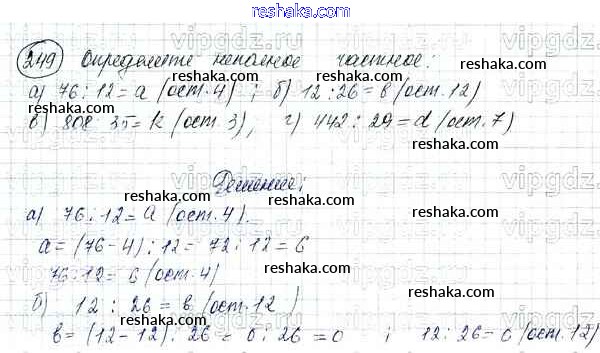 249 Определите неполное частное:
а) 76 : 12 = а (ост. 4) ; б) 12 : 26 = в (ост. 12)
в) 808 : 35 = k (ост. 3), г) 442 : 29 = d (ост. 7)
Решение:
а) 76 : 12 = а (ост. 4).
а = (76 - 4) : 12 = 72 : 12 = 6
76 : 12 = 6 (ост. 4)
б) 12 : 26 = в (ост. 12)
в = (12 - 12) : 26 = 0 : 26 = 0 ; 12 : 26 = 0 (ост. 12)
reshaka.com
vipgdz.ru